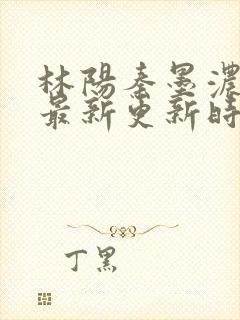 林陽秦墨濃
最新更新時
丁黑